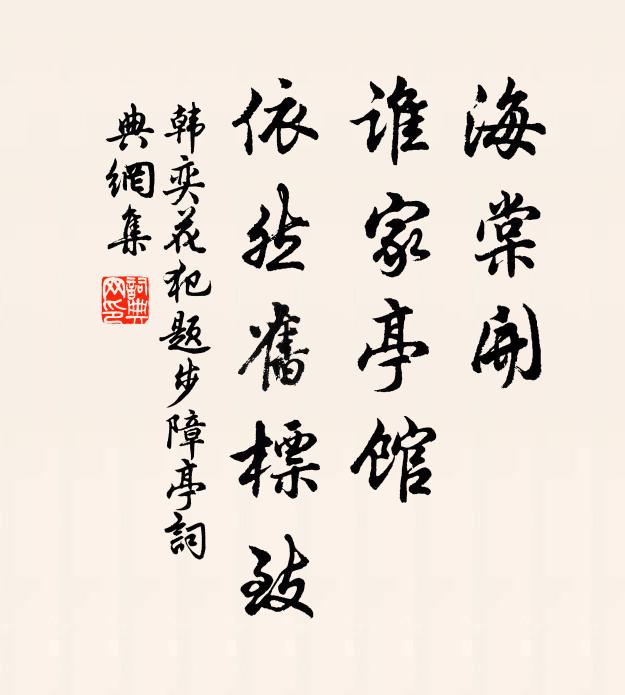 海棠開
誰家亭館
依然舊標致
韩奕花犯題步障亭詞
典網集
詞典
网印